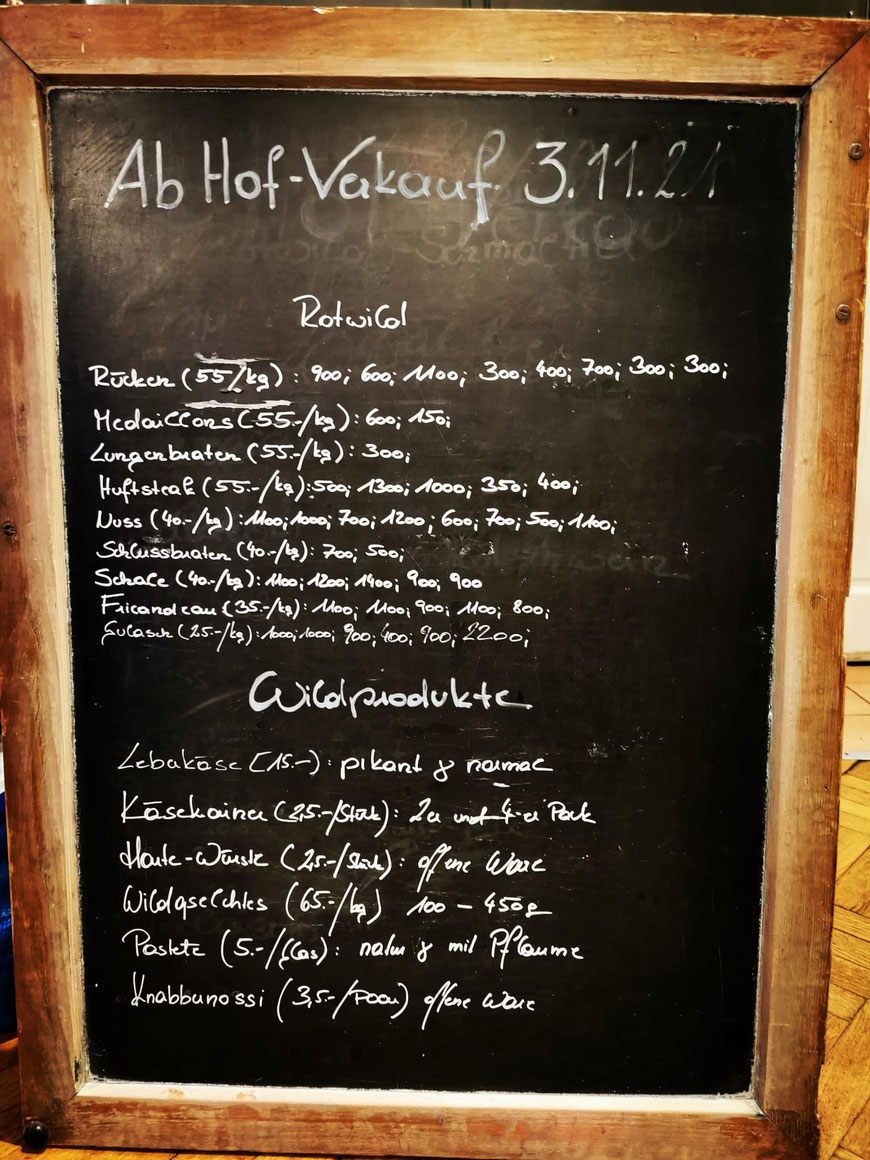 Ab Hof-Verkauf 3.11.21
Rotwild
Rücken (55/kg): 900; 600; 1100; 300; 400; 700; 300; 300;
Medaillons (55.-/kg): 600; 150;
Lungenbraten (55.-/kg): 300;
Huftsteak (55.-/kg): 500; 1300; 1000; 350; 400;
Nuss (40.-/kg): 1100; 1000; 700; 1200; 600; 700; 500; 1100;
Schlussbraten (40.-/kg): 700; 500;
Schale (40.-/kg): 1100; 1200; 1400; 900; 900
Fricandeau (35.-/kg): 1100; 1100; 900; 1100; 800;
Gulasch (25.-/kg): 1000; 1000; 900; 400; 900; 2200;
Wildprodukte
Leberkäse (15.-): pikant & normal
Käsekrainer (2,5.-/Stück): 2er und 4-er Pack
Haute-Würstl (2,5.-/Stück): offene Ware
Wildgselchtes (65.-/kg) 100 - 450g
Pastete (5.-/Glas): natur & mit Pflaume
Knabbernossi (3,5.-/Paar) offene Ware